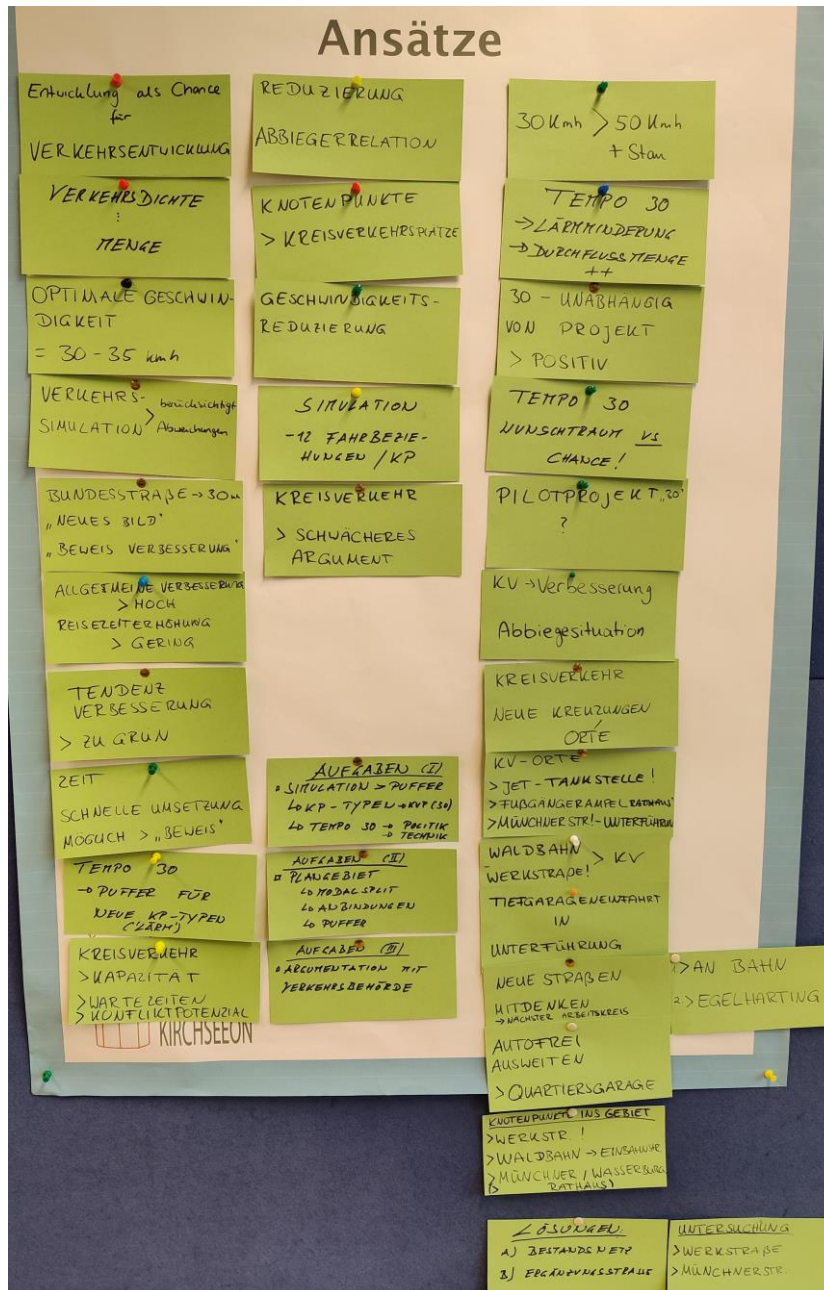 Ansätze
Entwicklung als Chance
für
VERKEHRSENTWICKLUNG
VERKEHRSDICHTE
:
MENGE
OPTIMALE GESCHWIN-
DIGKEIT
= 30 - 35 kmh
VERKEHRS-
SIMULATION > berücksichtigt
Abweichungen
BUNDESSTRAßE → 30
„NEUES BILD"
„BEWEIS VERBESSERUNG"
ALLGEMEINE VERBESSERUNG
> HOCH
REISEZEITERHÖHUNG
> GERING
TENDENZ
VERBESSERUNG
> ZU GRÜN
ZEIT
SCHNELLE UMSETZUNG
MÖGLICH > „BEWEIS"
TEMPO 30
→ PUFFER FÜR
NEUE KP-TYPEN
(LÄRM)
KREISVERKEHR
> KAPAZITÄT
> WARTEZEITEN
> KONFLIKTPOTENZIAL
KIRCHSEEON
REDUZIERUNG
ABBIEGERRELATION
KNOTENPUNKTE
> KREISVERKEHRSPLÄTZE
GESCHWINDIGKEITS-
REDUZIERUNG
SIMULATION
- 12 FAHRBEZIE-
HUNGEN / KP
KREISVERKEHR
> SCHWÄCHERES
ARGUMENT
AUFGABEN (I)
• SIMULATION > PUFFER
↳ KP-TYPEN → KVP (30)
↳ TEMPO 30 → POLITIK
→ TECHNIK
AUFGABEN (II)
▫ PLANGEBIET
↳ MODALSPLIT
↳ ANBINDUNGEN
↳ PUFFER
AUFGABEN (III)
• ARGUMENTATION MIT
VERKEHRSBEHÖRDE
30 Kmh > 50 Kmh
+ Stau
TEMPO 30
→ LÄRMMINDERUNG
→ DURCHFLUSSMENGE
++
30 - UNABHÄNGIG
VON PROJEKT
> POSITIV
TEMPO 30
WUNSCHTRAUM VS
CHANCE!
PILOTPROJEKT „30"
?
KV → Verbesserung
Abbiegesituation
KREISVERKEHR
NEUE KREUZUNGEN
/
ORTE
KV-ORTE
> JET-TANKSTELLE!
> FUßGÄNGERAMPEL RATHAUS!
> MÜNCHNER STR! - UNTERFÜHRUNG
WALDBAHN > KV
WERKSTRAßE!
TIEFGARAGENEINFAHRT
IN
UNTERFÜHRUNG
NEUE STRAßEN
MITDENKEN
→ NÄCHSTER ARBEITSKREIS
1 > AN BAHN
2. > EGELHARTING
AUTOFREI
AUSWEITEN
> QUARTIERSGARAGE
KNOTENPUNKTE INS GEBIET
> WERKSTR. !
> WALDBAHN → EINBAHNSTR.
> MÜNCHNER / WASSERBURG
RATHAUS)
LÖSUNGEN:
A) BESTANDSNETZ
B) ERGÄNZUNGSSTRAßE
UNTERSUCHUNG
> WERKSTRAßE
> MÜNCHNERSTR.